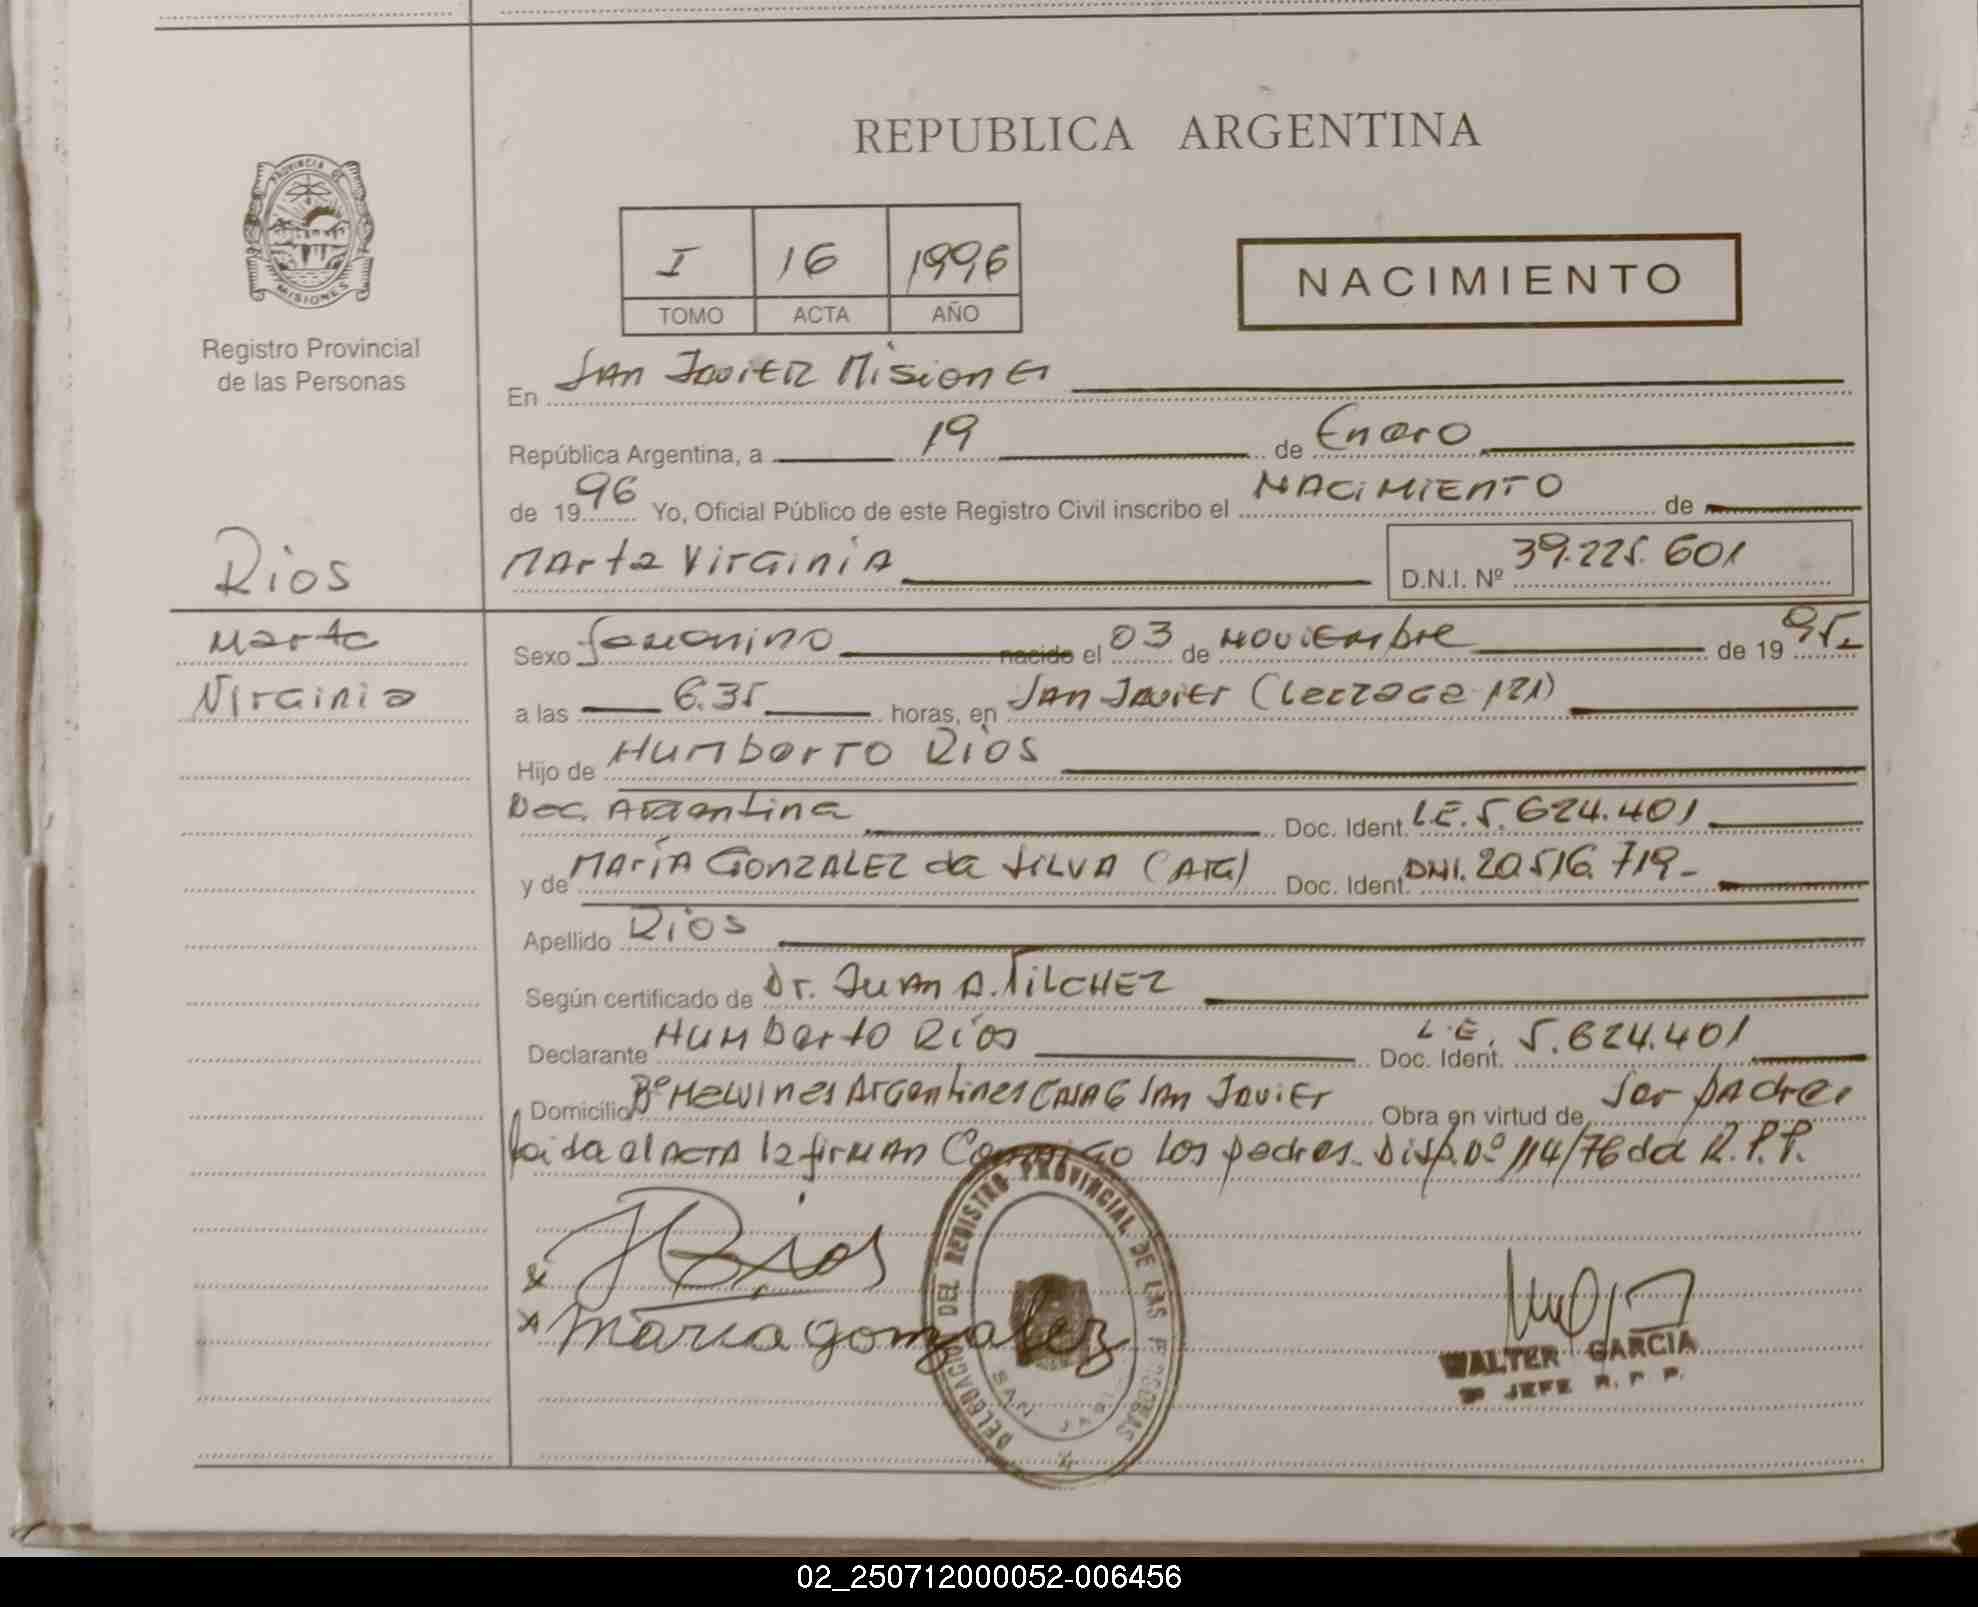 REPUBLICA ARGENTINA
PROVINCIA DE
MISIONES
Registro Provincial
de las Personas
I 16 1996
TOMO ACTA AÑO
NACIMIENTO
En San Javier Misiones
República Argentina, a 19 de Enero
de 1996 Yo, Oficial Público de este Registro Civil inscribo el NACIMIENTO de
Rios
Marta Virginia D.N.I. Nº 39.225.601
Marta
Virginia
Sexo femenino nacido el 03 de Noviembre de 1995
a las 6.35 horas, en San Javier (Lezzage 121)
Hijo de Humberto Rios
Doc. Argentina Doc. Ident. L.E. 5.624.401
y de María GONZALEZ da SILVA (ARG) Doc. Ident. DNI. 20.516.719-
Apellido Rios
Según certificado de Dr. Juan A. VILCHEZ
Declarante Humberto Ríos Doc. Ident. L.E. 5.624.401
Domicilio Bº Melvines Argentines CASA 6 San Javier Obra en virtud de Ser padre.
Leida el ACTA la firman Conmigo Los padres. Disp. Nº 114/76 del R.P.P.
x H Rios
x maria gonzalez
DELEGACION DEL REGISTRO PROVINCIAL DE LAS PERSONAS
SAN JAVIER
WALTER GARCIA
JEFE R. P. P.
02_250712000052-006456